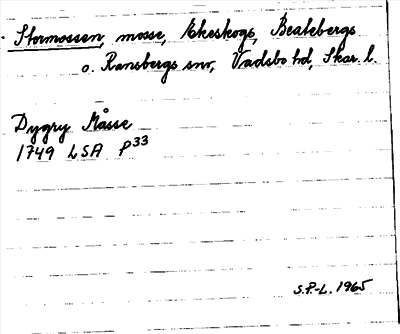 Stormossen, mosse, Ekeskogs, Beatebergs
o. Ransbergs snr, Vadsbo hd, Skar. l.
Dygry Måsse
1749 LSA P33
S.P-L. 1965